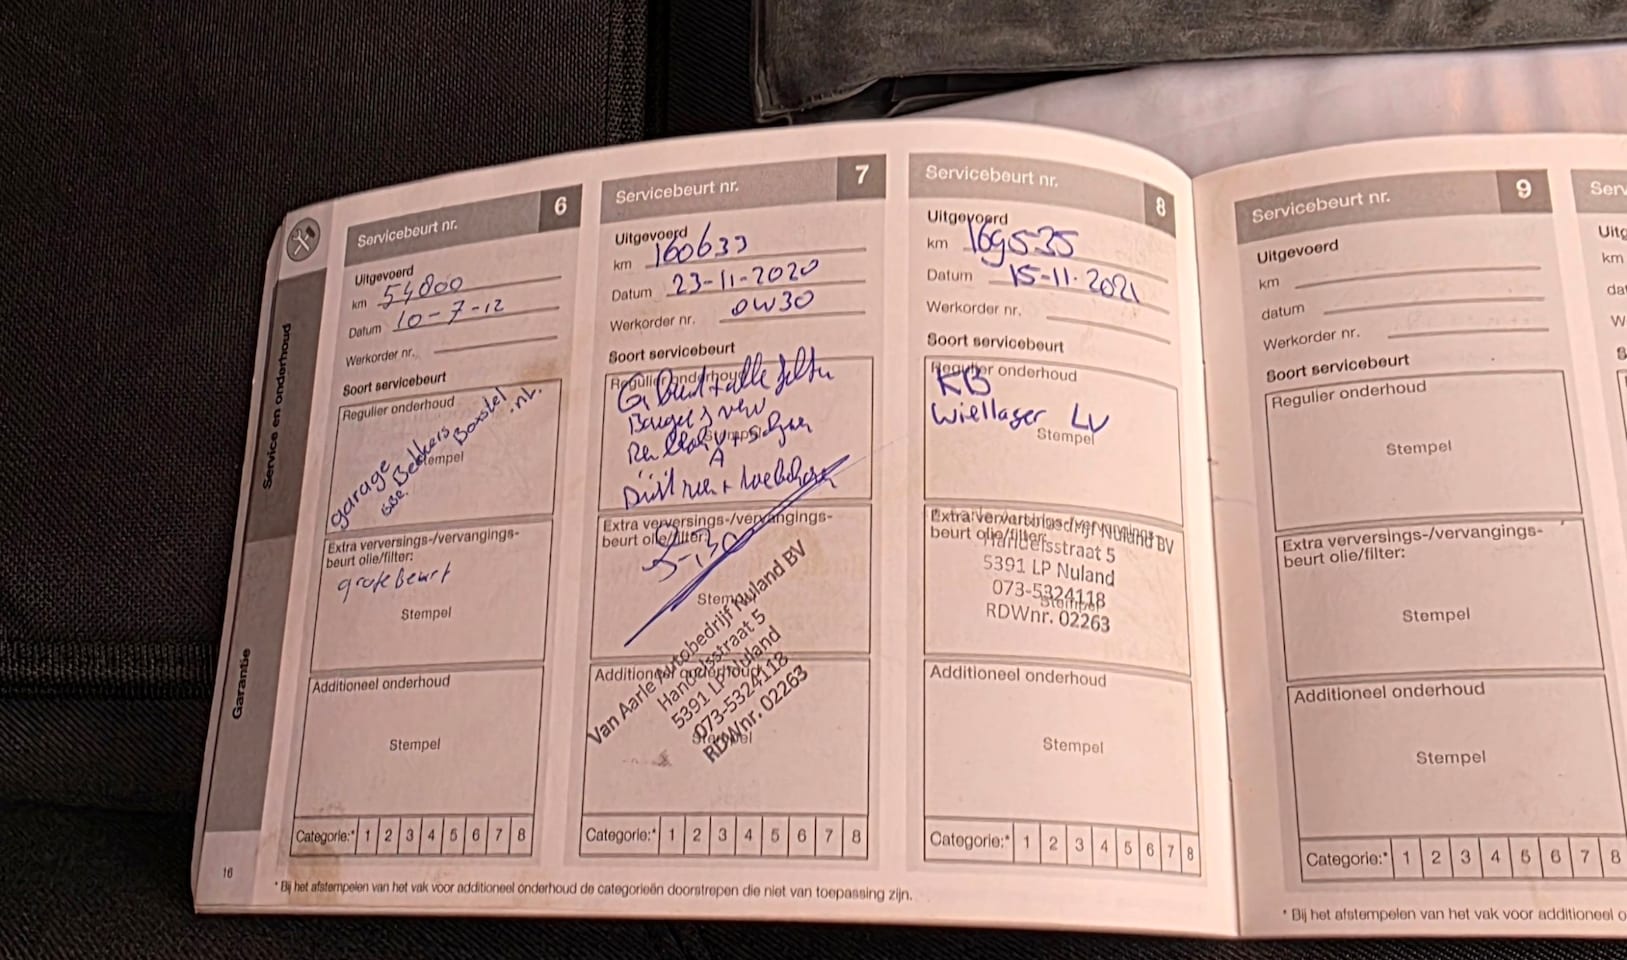 Service en onderhoud
Garantie
16
Servicebeurt nr. 6
Uitgevoerd
km 54800
Datum 10-7-12
Werkorder nr.
Soort servicebeurt
Regulier onderhoud
garage
Bekkers Boxstel
Stempel
Extra verversings-/vervangings-
beurt olie/filter:
grote beurt
Stempel
Additioneel onderhoud
Stempel
Categorie:* 1 2 3 4 5 6 7 8
Servicebeurt nr. 7
Uitgevoerd
km 160633
Datum 23-11-2020
Werkorder nr. 0W30
Soort servicebeurt
Regulier onderhoud
G Beurt + alle
Stempel
A
Extra verversings-/vervangings-
beurt olie/filter:
Stempel
Van Aarle Autobedrijf Nuland BV
Handelsstraat 5
5391 LP Nuland
073-5324118
RDWnr. 02263
Additioneel onderhoud
Stempel
Categorie:* 1 2 3 4 5 6 7 8
Servicebeurt nr. 8
Uitgevoerd
km 169535
Datum 15-11-2021
Werkorder nr.
Soort servicebeurt
Regulier onderhoud
KB
Wiellager LV
Stempel
Extra verversings-/vervangings-
beurt olie/filter:
Nuland BV
Handelsstraat 5
5391 LP Nuland
073-5324118
Stempel
RDWnr. 02263
Additioneel onderhoud
Stempel
Categorie:* 1 2 3 4 5 6 7 8
* Bij het afstempelen van het vak voor additioneel onderhoud de categorieën doorstrepen die niet van toepassing zijn.
Servicebeurt nr. 9
Uitgevoerd
km
datum
Werkorder nr.
Soort servicebeurt
Regulier onderhoud
Stempel
Extra verversings-/vervangings-
beurt olie/filter:
Stempel
Additioneel onderhoud
Stempel
Categorie:* 1 2 3 4 5 6 7 8
* Bij het afstempelen van het vak voor additioneel o
Serv
Uitg
km
dat
W
S